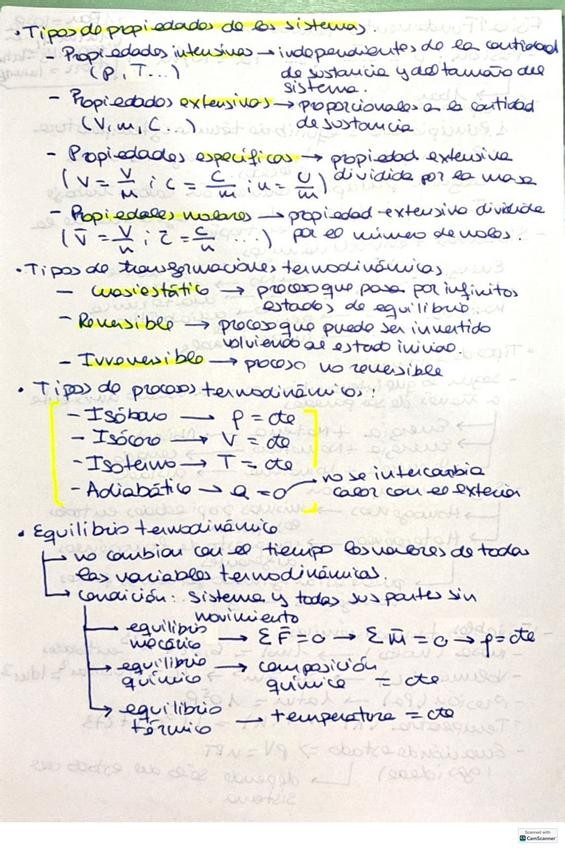 • Tipos de propiedades de los sistemas.
- Propiedades intensivas → independientes de la cantidad
(P, T...) de sustancia y del tamaño del
sistema.
- Propiedades extensivas → proporcionales a la cantidad
(V, m, C...) de sustancia
- Propiedades específicas → propiedad extensiva
(v = V/m ; c = C/m ; u = U/m) dividida por la masa
- Propiedades molares → propiedad extensiva dividida
(v̄ = V/n ; c̄ = C/n ...) por el número de moles.
• Tipos de transformaciones termodinámicas
- cuasiestático → proceso que pasa por infinitos
estados de equilibrio
- Reversible → proceso que puede ser invertido
volviendo al estado inicial
- Irreversible → proceso no reversible
• Tipos de procesos termodinámicos:
- Isóbaro → p = cte
- Isócoro → V = cte
- Isotermo → T = cte
- Adiabático → Q = 0 → no se intercambia
calor con el exterior
• Equilibrio termodinámico
→ no cambian con el tiempo los valores de todas
las variables termodinámicas
→ condición: sistema y todas sus partes sin
movimiento
→ equilibrio
mecánico → Σ F̄ = 0 → Σ m̄ = 0 → p = cte
→ equilibrio
químico → composición
química = cte
→ equilibrio
térmico → temperatura = cte
Scanned with
CamScanner